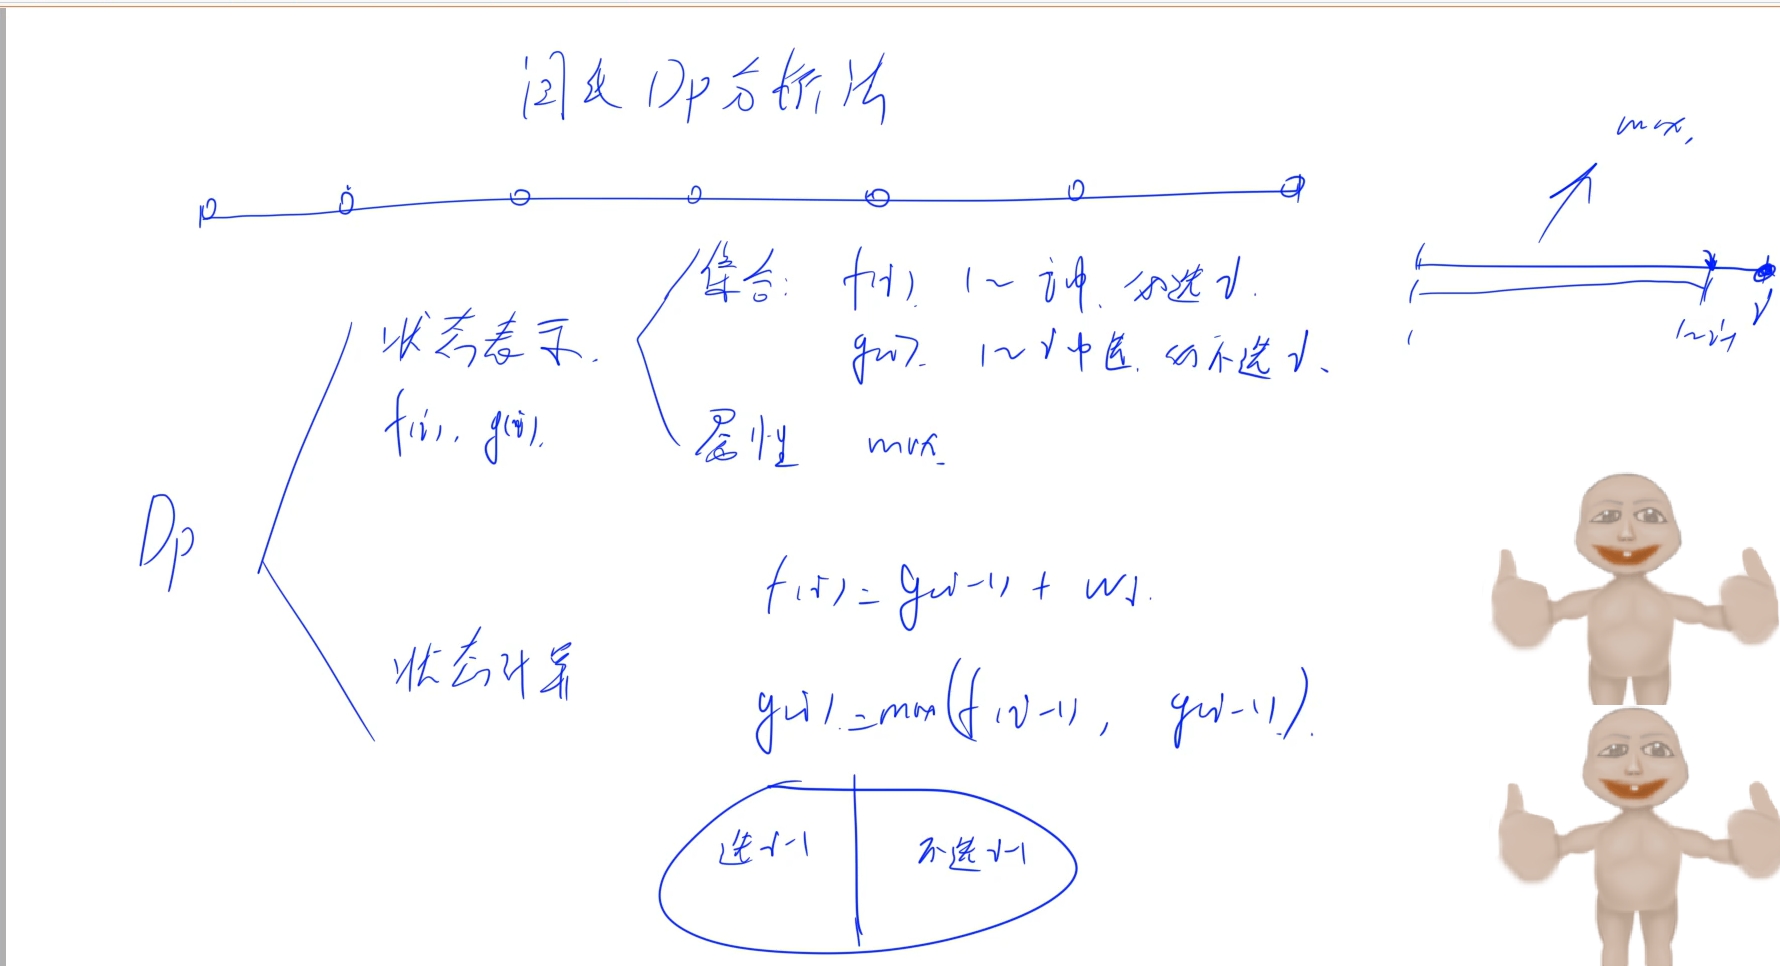 闫氏Dp分析法
max.
集合: f(i). 1~i中. 必选i.
g(i). 1~i中选. 必不选i.
1
1~i-1
i
状态表示.
f(i), g(i).
属性 max.
Dp
f(i) = g(i-1) + wi.
状态计算
g(i) = max(f(i-1), g(i-1)).
选i-1
不选i-1